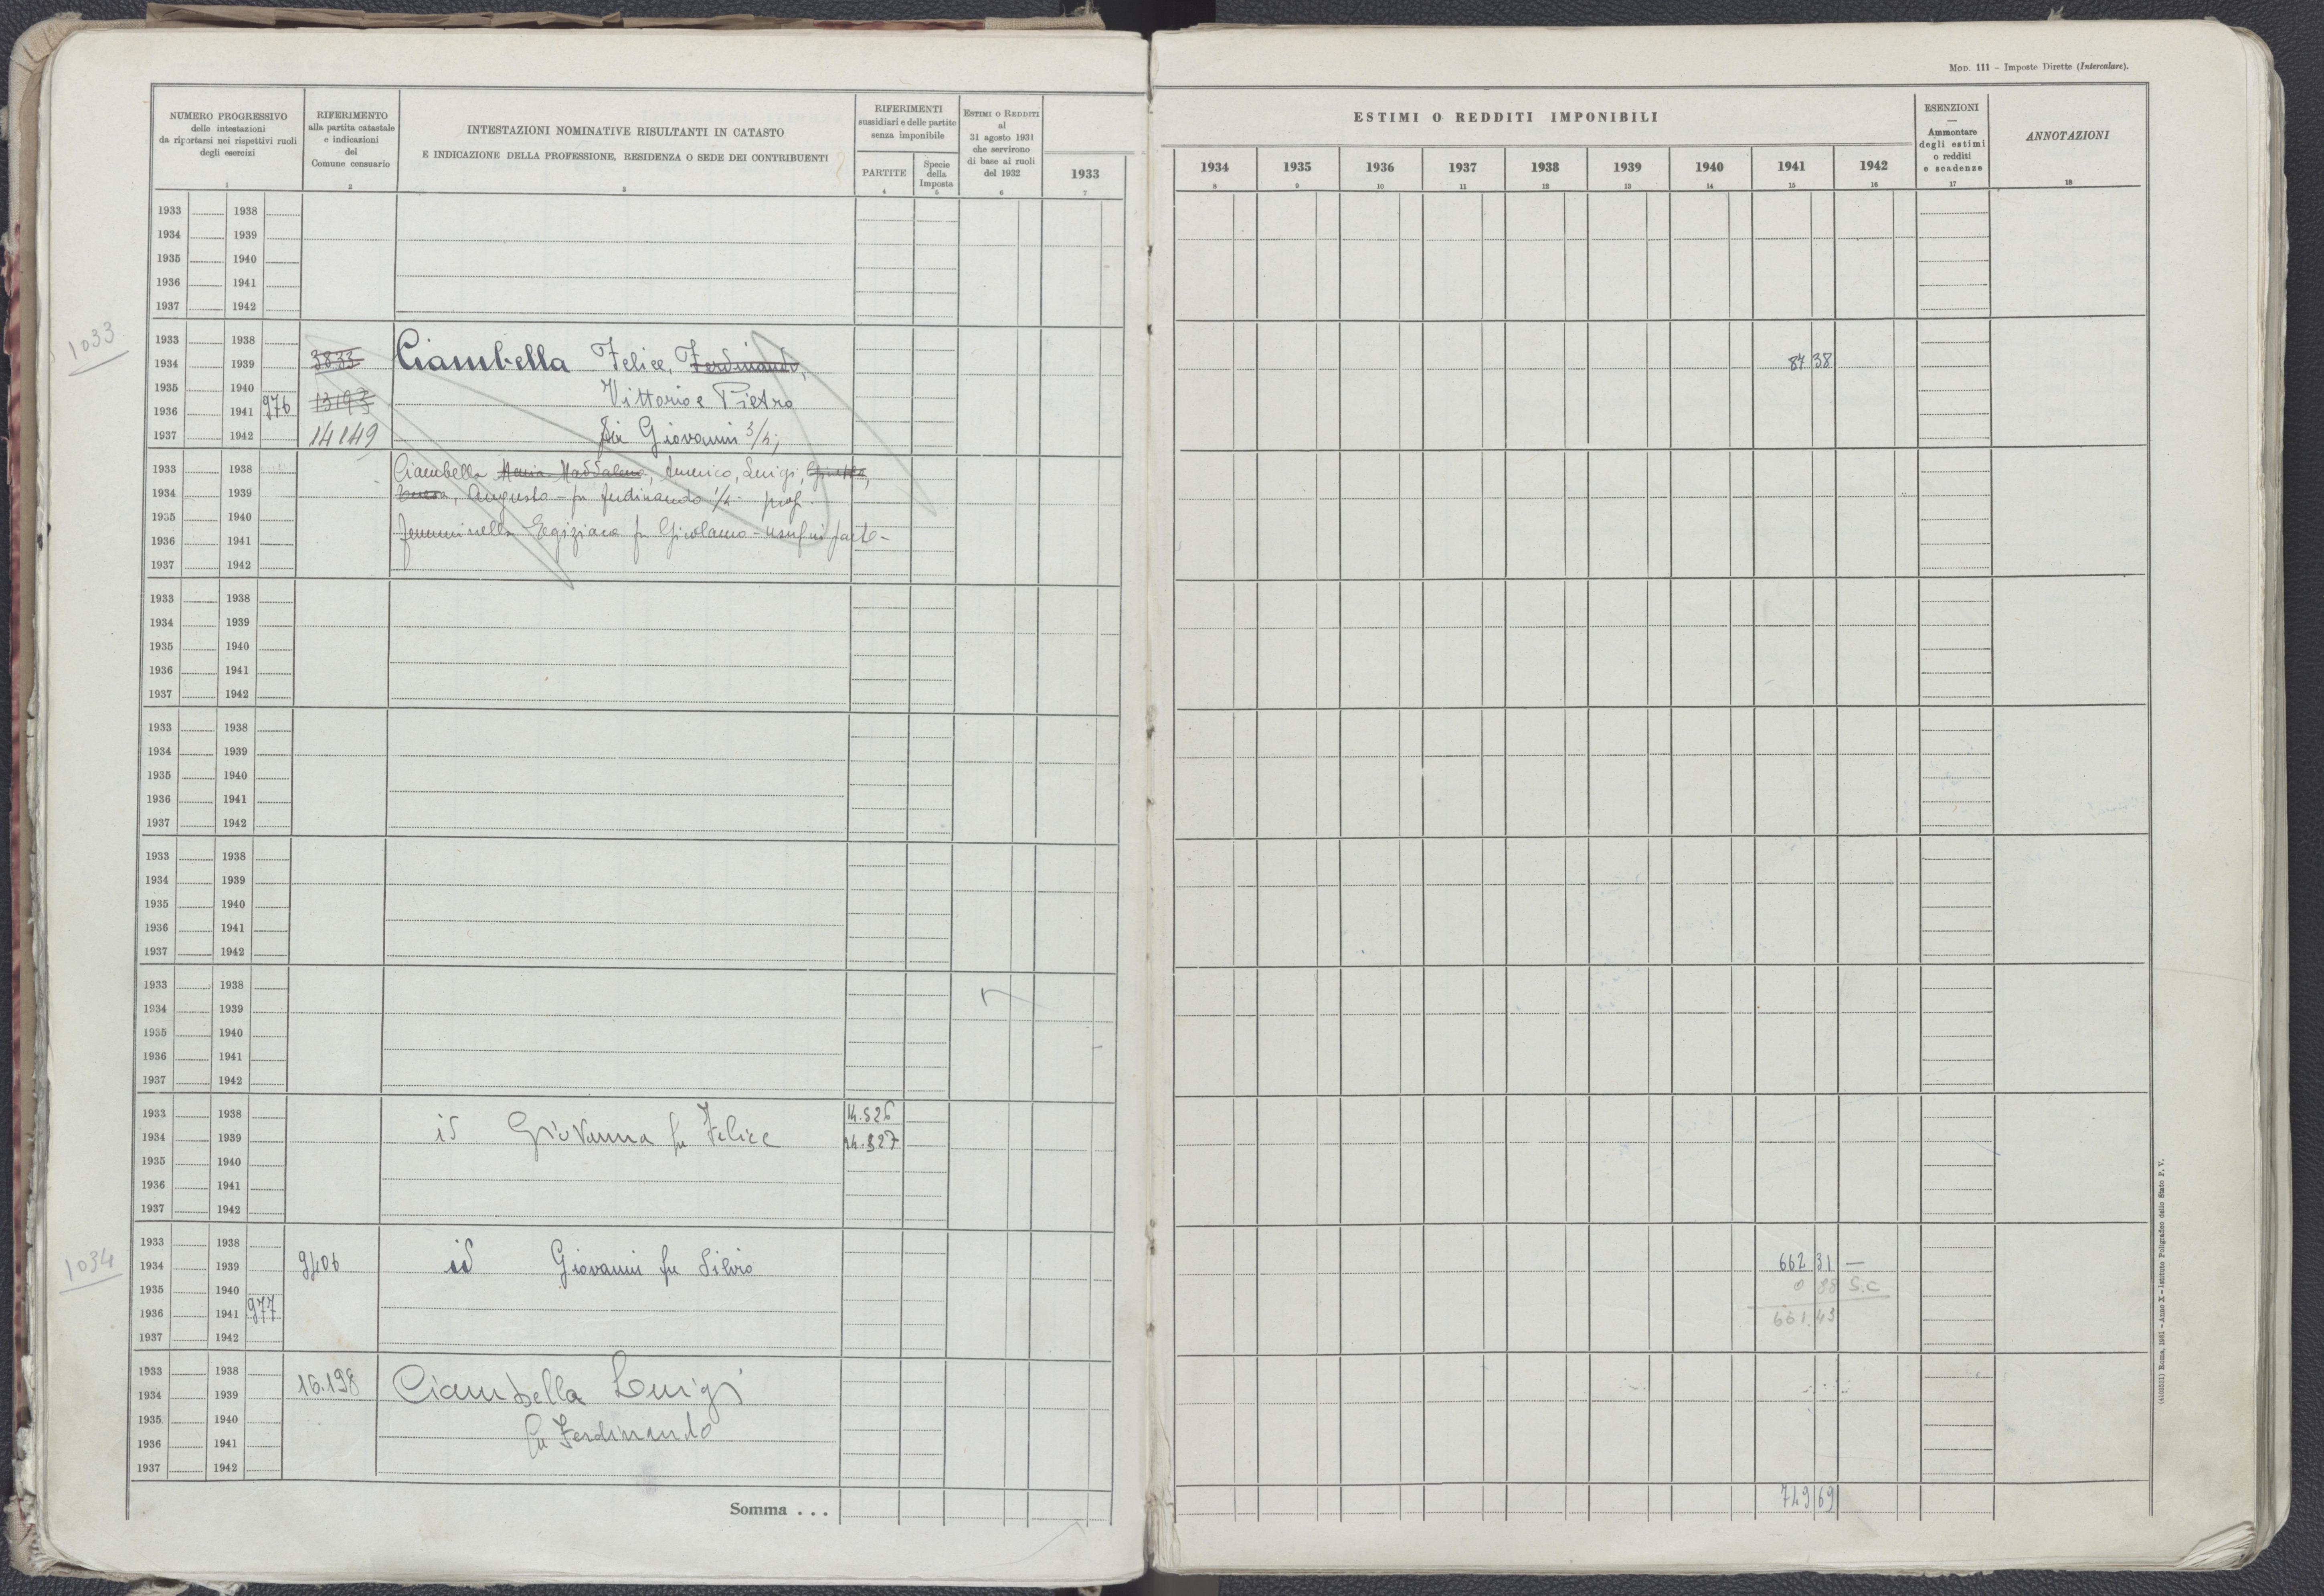 MOD. 111 – Imposte Dirette (Intercalare).
NUMERO PROGRESSIVO
delle intestazioni
da riportarsi nei rispettivi ruoli
degli esercizi
1
RIFERIMENTO
alla partita catastale
e indicazioni
del
Comune censuario
2
INTESTAZIONI NOMINATIVE RISULTANTI IN CATASTO
E INDICAZIONE DELLA PROFESSIONE, RESIDENZA O SEDE DEI CONTRIBUENTI
3
RIFERIMENTI
sussidiari e delle partite
senza imponibile
PARTITE
4
Specie
della
Imposta
5
ESTIMI O REDDITI
al
31 agosto 1931
che servirono
di base ai ruoli
del 1932
6
1933
7
ESTIMI O REDDITI IMPONIBILI
1934 1935 1936 1937 1938 1939 1940 1941 1942
8 9 10 11 12 13 14 15 16
ESENZIONI
—
Ammontare
degli estimi
o redditi
e scadenze
17
ANNOTAZIONI
18
1933 1938
1934 1939
1935 1940
1936 1941
1937 1942
1033
1933 1938
1934 1939 3833 Ciambella Felice, Ferdinando, 87 38
1935 1940 13193 Vittorio e Pietro
1936 1941 976
1937 1942 14149 fu Giovanni 3/4;
1933 1938 Ciambella Maria Maddalena, Americo, Luigi,
1934 1939 Augusto - fu Ferdinando 1/4 - prop.
1935 1940
1936 1941 Femminella Egiziaca fu Girolamo - usuf. in parte -
1937 1942
1933 1938
1934 1939
1935 1940
1936 1941
1937 1942
1933 1938
1934 1939
1935 1940
1936 1941
1937 1942
1933 1938
1934 1939
1935 1940
1936 1941
1937 1942
1933 1938
1934 1939
1935 1940
1936 1941
1937 1942
1933 1938 14.526
1934 1939 id Giovanna fu Felice 14.527
1935 1940
1936 1941
1937 1942
1034
1933 1938
1934 1939 9406 id Giovanni fu Silvio 662 31 —
1935 1940 0 88 S.C
1936 1941 977 661 43
1937 1942
1933 1938
1934 1939 16.198 Ciambella Luigi
1935 1940 fu Ferdinando
1936 1941
1937 1942
Somma . . . 749 69
(4103021) Roma, 1931 – Anno X – Istituto Poligrafico dello Stato P. V.